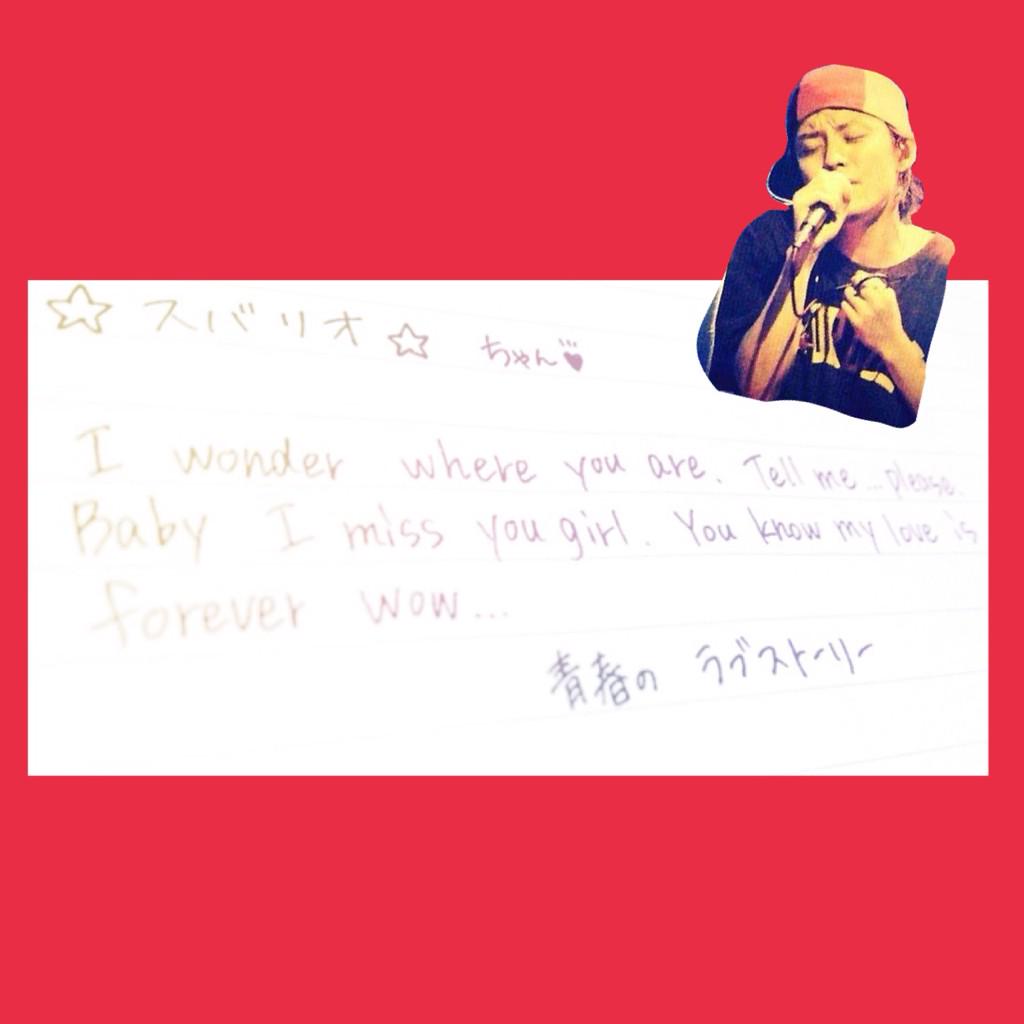 ☆スバリオ☆ ちゃん
I wonder where you are. Tell me...please.
Baby I miss you girl. You know my love is
forever wow...
青春の ラブストーリー